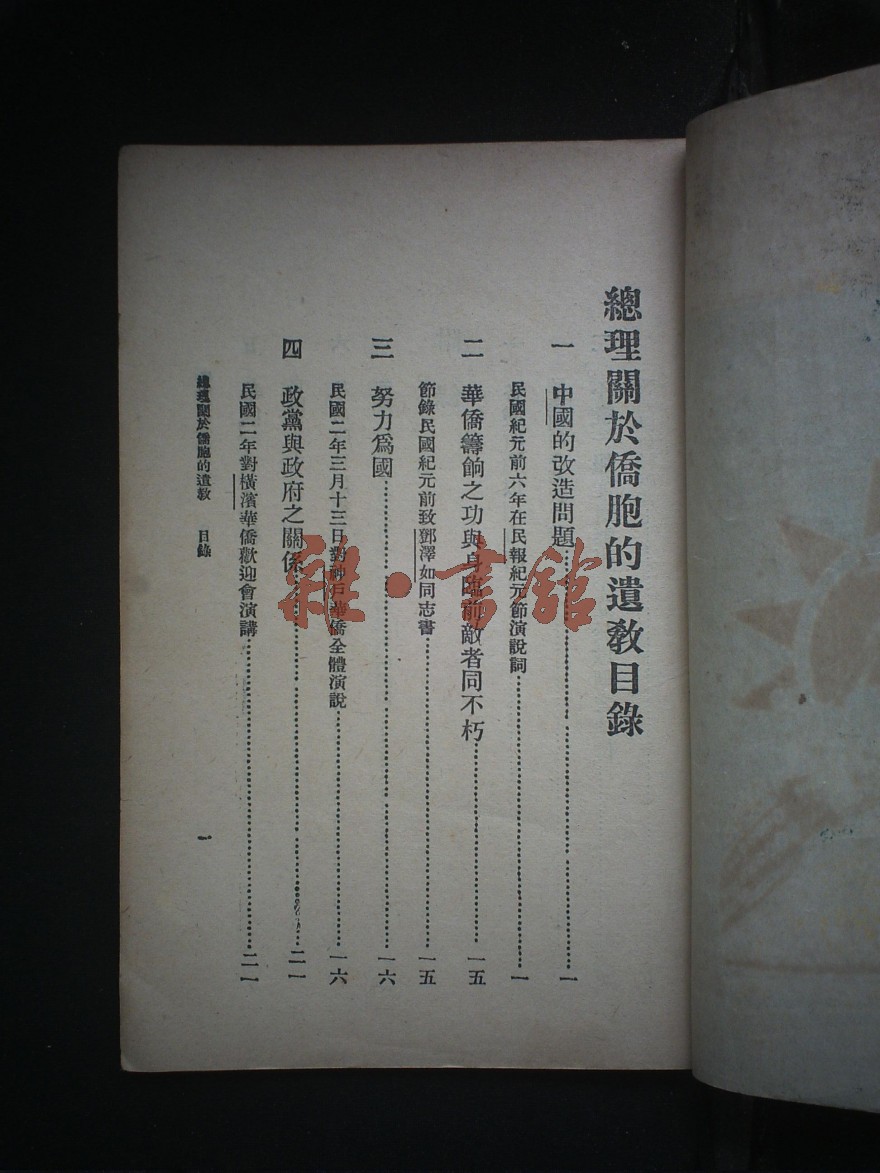 總理關於僑胞的遺敎目錄
一 中國的改造問題……一
民國紀元前六年在民報紀元節演說詞……一
二 華僑籌餉之功與身臨前敵者同不朽……一五
節錄民國紀元前致鄧澤如同志書……一五
三 努力爲國……一六
民國二年三月十三日對神戶華僑全體演說……一六
四 政黨與政府之關係……二一
民國二年對橫濱華僑歡迎會演講……二一
總理關於僑胞的遺敎 目錄 一
雜·書館